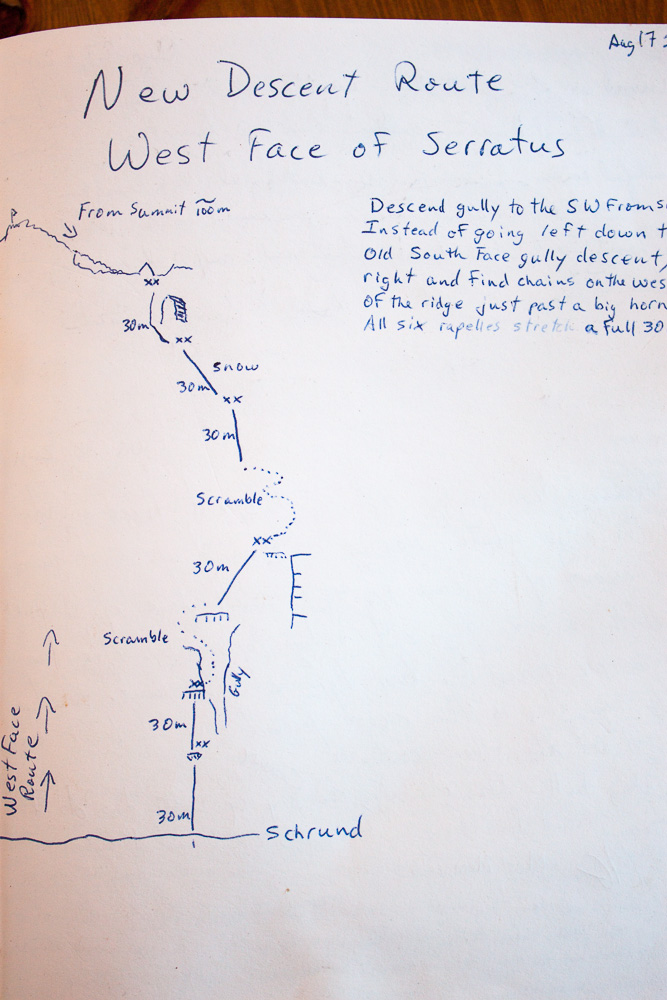 Aug 17
New Descent Route
West Face of Serratus
From Summit ~100m
Descend gully to the SW From
Instead of going left down
Old South Face gully descent,
right and find chains on the
of the ridge just past a big horn
All six rapelles stretch a full 30
xx
30m
xx
snow
30m
xx
30m
Scramble
xx
30m
Scramble
Gully
xx
30m
xx
30m
Schrund
West Face
Route